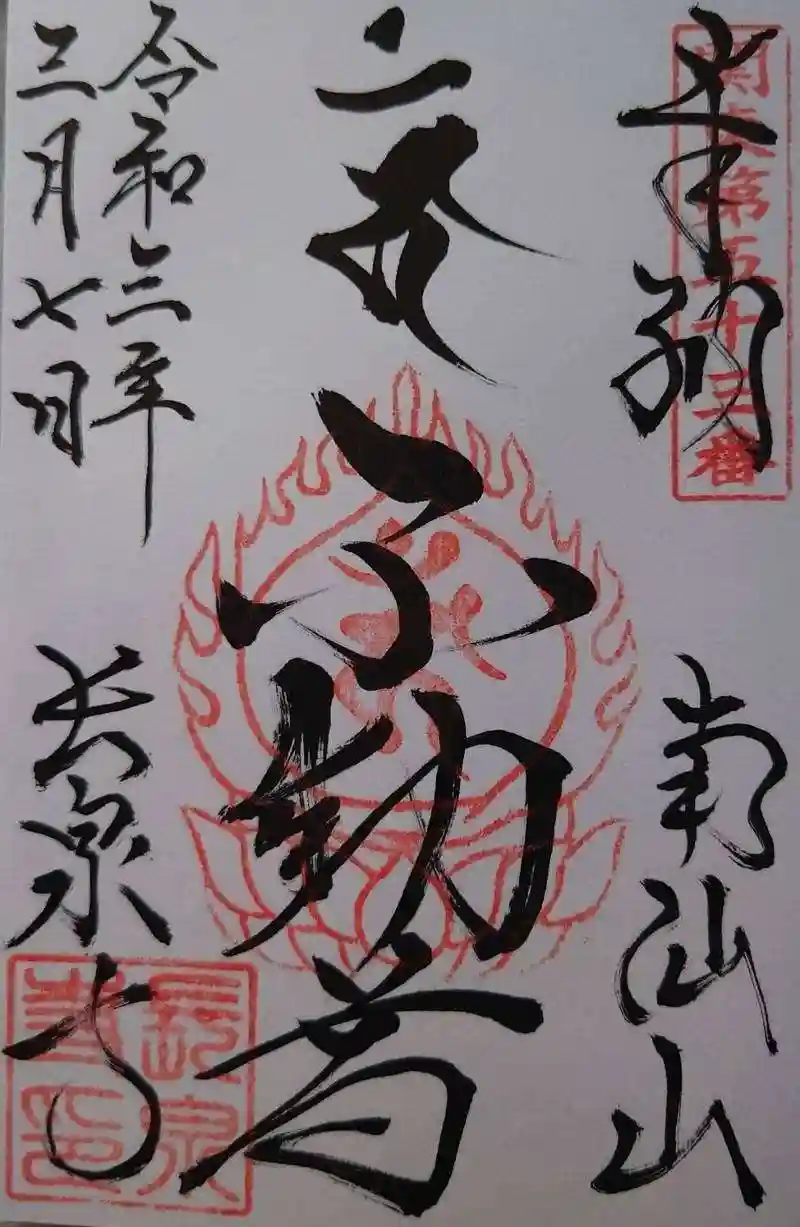 関東第五十三番
奉納
南仙山
不動尊
令和三年
三月七日
長泉寺
長泉